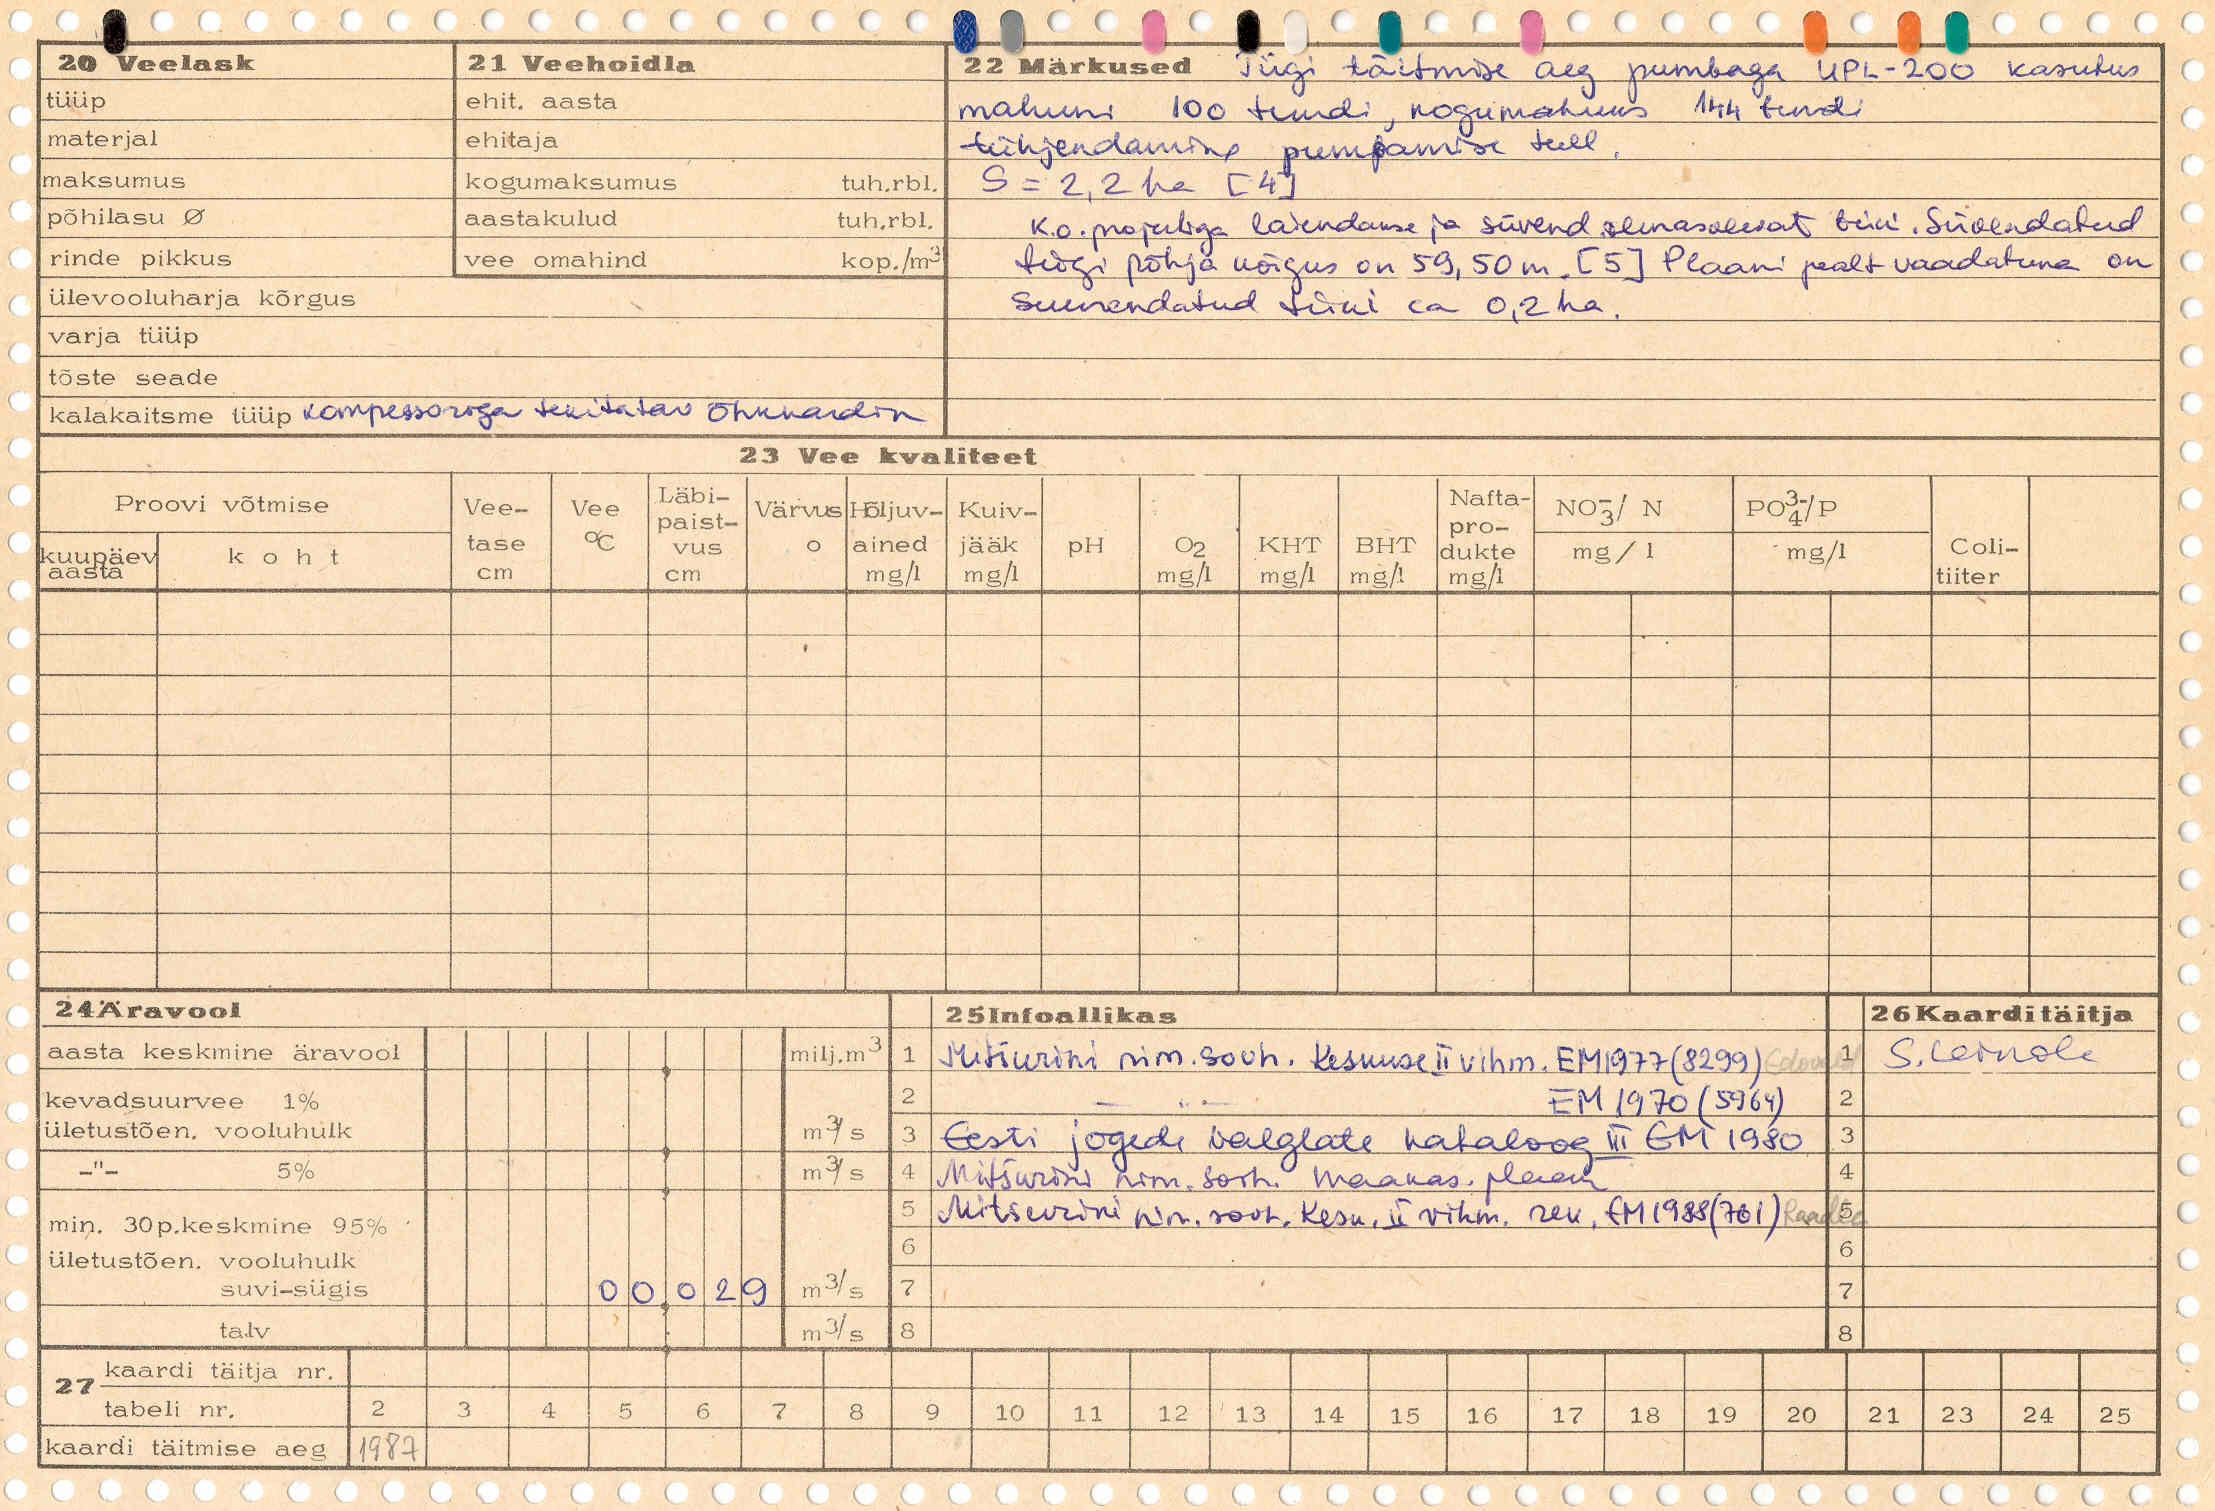 20 Veelask
tüüp
materjal
maksumus
põhilasu Ø
rinde pikkus
ülevooluharja kõrgus
varja tüüp
tõste seade
kalakaitsme tüüp kompessoriga tekitatav õhukardin
21 Veehoidla
ehit. aasta
ehitaja
kogumaksumus tuh.rbl.
aastakulud tuh.rbl.
vee omahind kop./m3
22 Märkused Tiigi täitmise aeg pumbaga UPL-200 kasutus
mahuni 100 tundi, kogumahuks 144 tundi
tühjendamine pumpamise teel.
S = 2,2 ha [4]
K.o. projektiga laiendakse ja süvend. olemasolevat tiiki. Süvendatud
tiigi põhja kõrgus on 59,50 m. [5] Plaani pealt vaadatuna on
suurendatud tiiki ca 0,2 ha.
23 Vee kvaliteet
Proovi võtmise
kuupäev aasta
koht
Vee-tase cm
Vee °C
Läbi-paist-vus cm
Värvus o
Hõljuv-ained mg/l
Kuiv-jääk mg/l
pH
O2 mg/l
KHT mg/l
BHT mg/l
Nafta-pro-dukte mg/l
NO3-/ N mg/l
PO4 3-/P mg/l
Coli-tiiter
24 Äravool
aasta keskmine äravool milj.m3
kevadsuurvee 1%
ületustõen. vooluhulk m3/s
-"- 5% m3/s
min. 30p.keskmine 95%
ületustõen. vooluhulk
suvi-sügis 00 029 m3/s
talv m3/s
25 Infoallikas
1 Mitšurini nim. sovh. Keskuse II vihm. EM 1977 (8299)
2 — " — EM 1970 (5964)
3 Eesti jõgede valglate kataloog III EM 1980
4 Mitšurini nim. sovh. maakas. plaan
5 Mitšurini nim. sovh. Kesk. II vihm. rek. EM 1988 (761)
6
7
8
26 Kaarditäitja
1
2
3
4
5
6
7
8
27 kaardi täitja nr.
tabeli nr. 2 3 4 5 6 7 8 9 10 11 12 13 14 15 16 17 18 19 20 21 23 24 25
kaardi täitmise aeg 1987